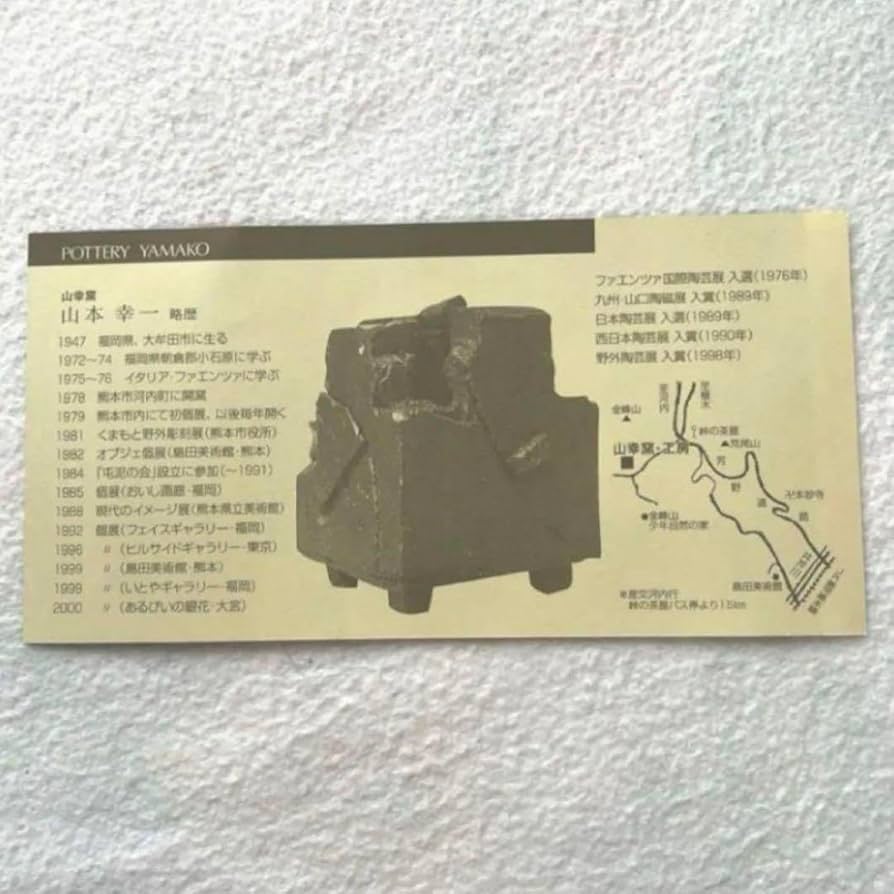 POTTERY YAMAKO
山幸窯
山本 幸一 略歴
1947 福岡県、大牟田市に生る
1972〜74 福岡県朝倉郡小石原に学ぶ
1975〜76 イタリア・ファエンツァに学ぶ
1978 熊本市河内町に開窯
1979 熊本市内にて初個展、以後毎年開く
1981 くまもと野外彫刻展(熊本市役所)
1982 オブジェ個展(島田美術館・熊本)
1984 「屯泥の会」設立に参加(〜1991)
1985 個展(おいし画廊・福岡)
1988 現代のイメージ展(熊本県立美術館)
1992 個展(フェイスギャラリー・福岡)
1996 〃(ヒルサイドギャラリー・東京)
1999 〃(島田美術館・熊本)
1999 〃(いとやギャラリー・福岡)
2000 〃(あるぴいの銀花・大宮)
ファエンツァ国際陶芸展 入選(1976年)
九州・山口陶磁展 入賞(1989年)
日本陶芸展 入選(1989年)
西日本陶芸展 入賞(1990年)
野外陶芸展 入賞(1998年)
至河内
至植木
金峰山
峠の茶屋
荒尾山
山幸窯・工房
芳野
道路
卍本妙寺
金峰山
少年自然の家
島田美術館
※産交河内行
峠の茶屋バス停より1.5km